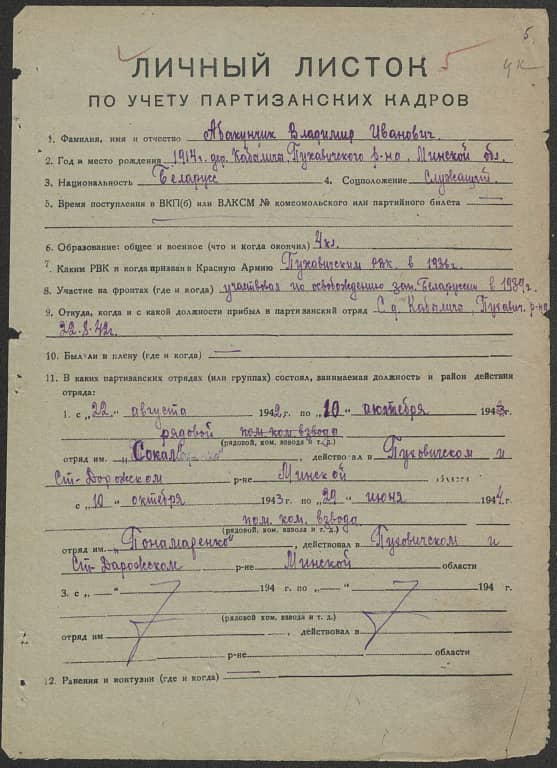 5.
5
ЧК
ЛИЧНЫЙ ЛИСТОК
ПО УЧЕТУ ПАРТИЗАНСКИХ КАДРОВ
1. Фамилия, имя и отчество Абакунчик Владимир Иванович.
2. Год и место рождения 1914 г. дер. Кабаличи Пуховичского р-на Минской обл.
3. Национальность Беларусс 4. Соцположение Служащий.
5. Время поступления в ВКП(б) или ВЛКСМ № комсомольского или партийного билета —
—
6. Образование: общее и военное (что и когда окончил) 4 кл.
7. Каким РВК и когда призван в Красную Армию Пуховичским рвк. в 1936 г.
8. Участие на фронтах (где и когда) участвовал по освобождению зап. Беларуссии в 1939 г.
9. Откуда, когда и с какой должности прибыл в партизанский отряд С д. Кабаличи, Пухович. р-на
22.8.42 г.
10. Был ли в плену (где и когда) —
11. В каких партизанских отрядах (или группах) состоял, занимаемая должность и район действия
отряда:
1. с „22“ августа 1942 г. по „10“ октября 1943 г.
рядовой пом. ком. взвода
(рядовой, ком. взвода и т. д.)
отряд им. „Сокол“, действовал в Пуховичском и
Ст-Дорожском р-не Минской области
с „10“ октября 1943 г. по „29“ июня 1944 г.
пом. ком. взвода
(рядовой, ком. взвода и т. д.)
отряд им. „Понамаренко“, действовал в Пуховичском и
Ст-Дарожском р-не Минской области
3. с „—“ 194 г. по „—“ 194 г.
(рядовой ком. взвода и т. д.)
отряд им , действовал в
р-не области
12. Ранения и контузии (где и когда) —